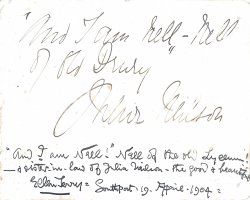 "And I am Nell" - Nell
of old Drury
Julia Neilson
"And I am Nell." Nell of the old Lyceum
- a sister-in-law of Julia Neilson - the good & beautiful
Ellen Terry = Southport 19. April - 1904 -